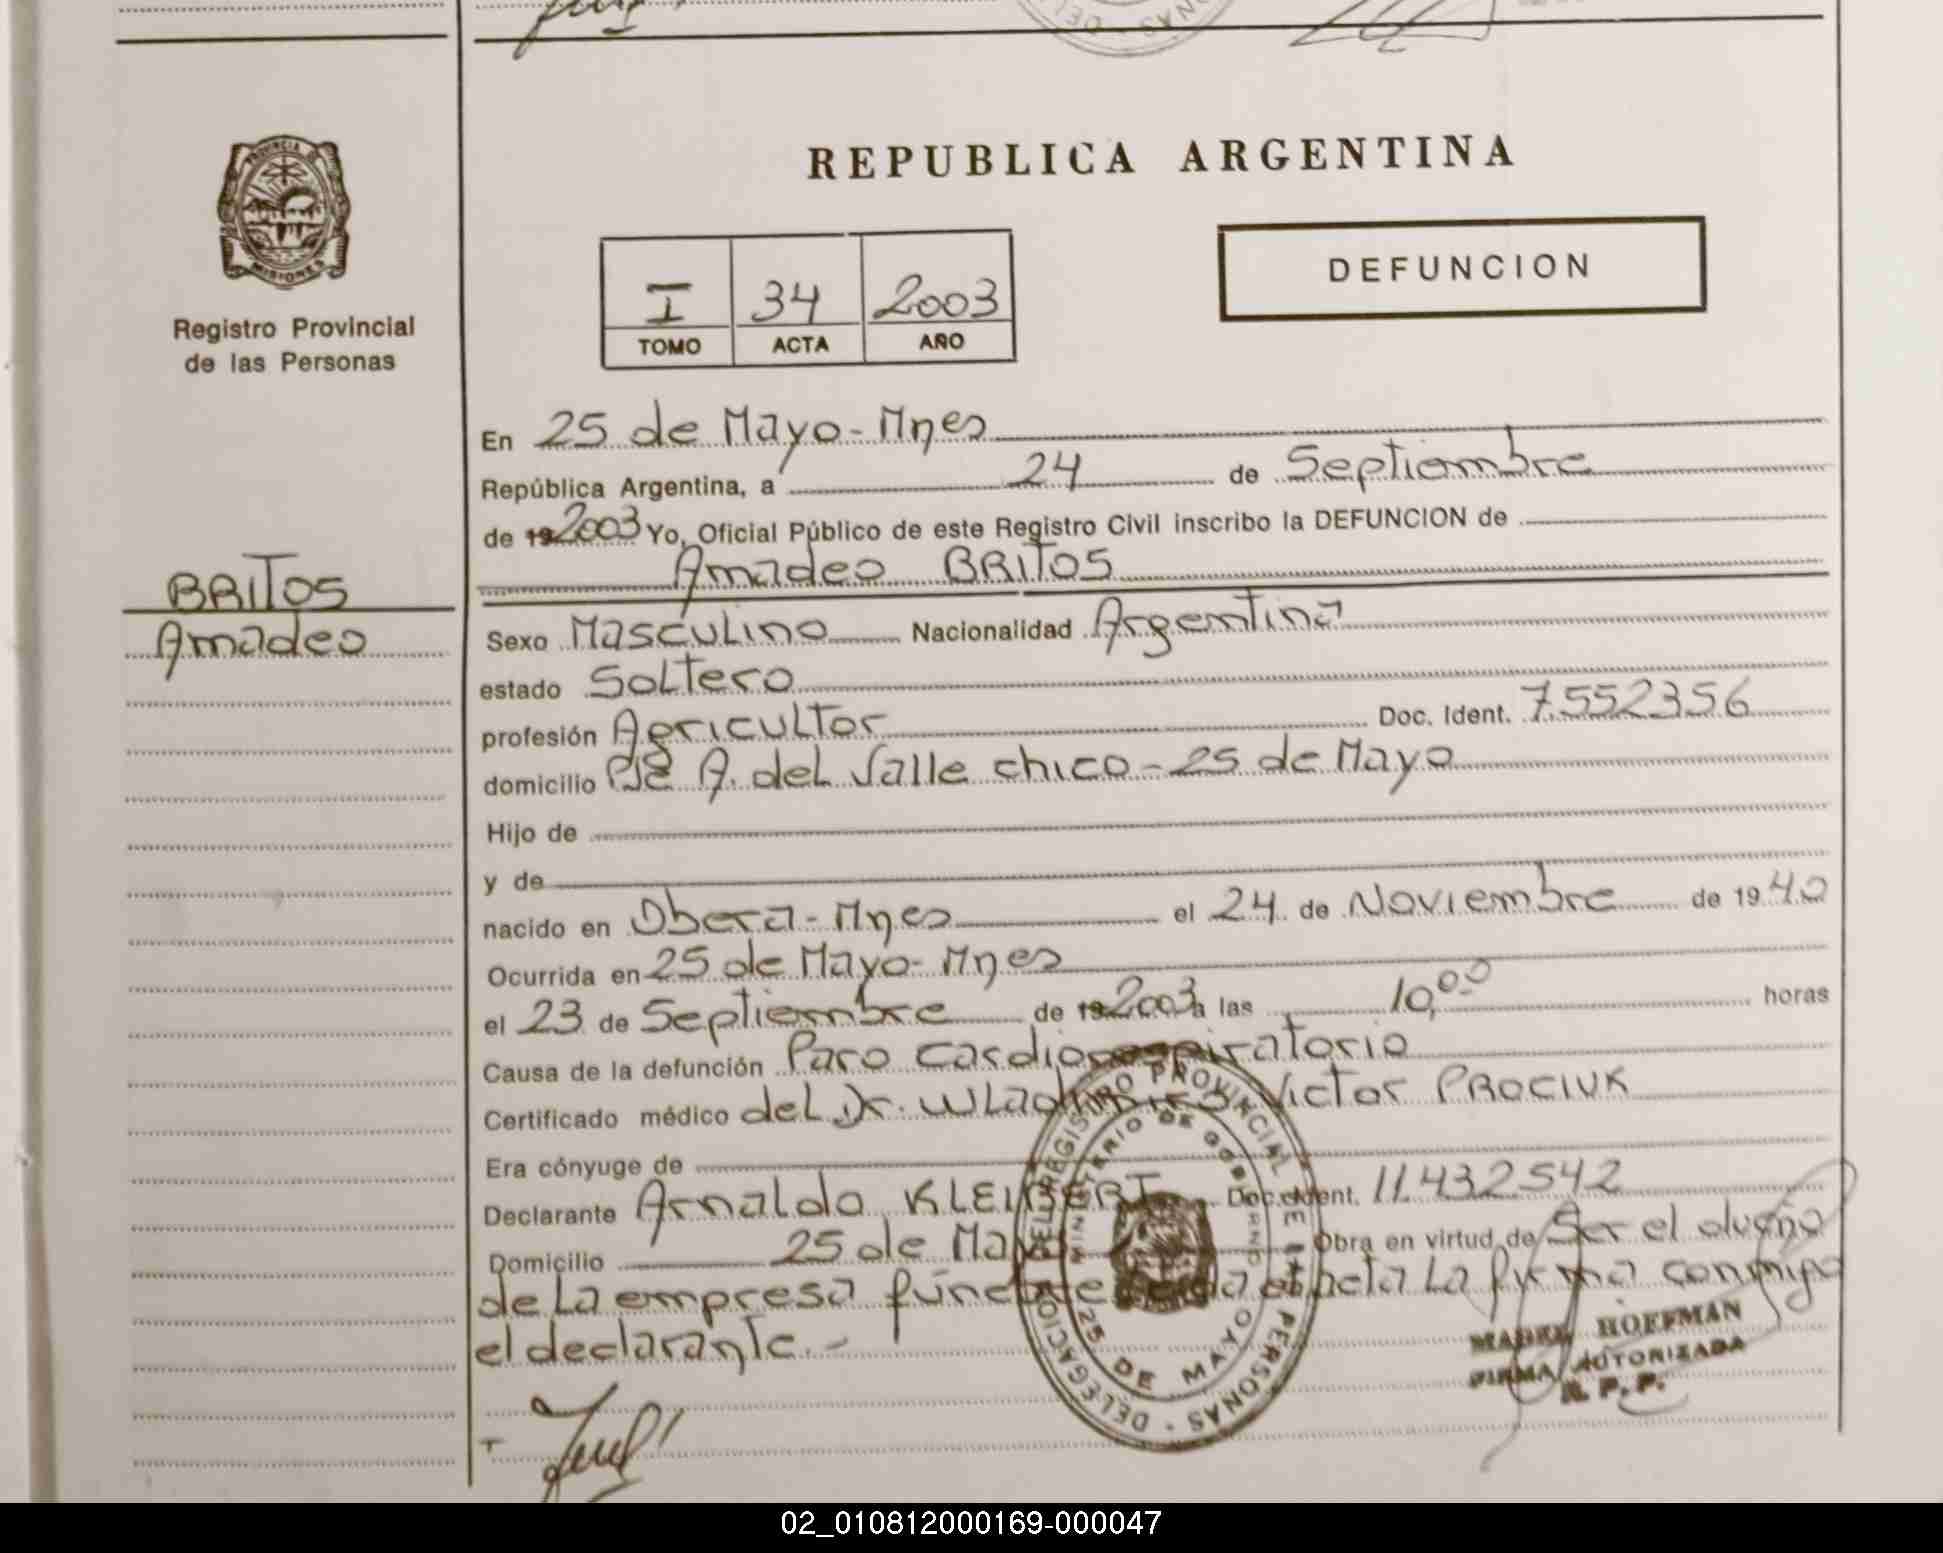 PROVINCIA DE
MISIONES
Registro Provincial
de las Personas
BRITOS
Amadeo
REPUBLICA ARGENTINA
I 34 2003
TOMO ACTA AÑO
DEFUNCION
En 25 de Mayo - Mnes
República Argentina, a 24 de Septiembre
de 19 2003 Yo, Oficial Público de este Registro Civil inscribo la DEFUNCION de
Amadeo BRITOS
Sexo Masculino Nacionalidad Argentina
estado Soltero
profesión Agricultor Doc. Ident. 7.552356
domicilio Pje A. del Valle chico - 25 de Mayo
Hijo de
y de
nacido en Obera - Mnes el 24 de Noviembre de 19 40
Ocurrida en 25 de Mayo - Mnes
el 23 de Septiembre de 19 2003 a las 10,00 horas
Causa de la defunción Paro cardiorespiratorio
Certificado médico del Dr. Wladimiro Victor PROCIUK
Era cónyuge de
Declarante Arnaldo KLEIBERT Doc. Ident. 11.432542
Domicilio 25 de Mayo Obra en virtud de Ser el dueño
de La empresa fúnebre La firma conmigo
el declarante. -
DEL REGISTRO PROVINCIAL DE LAS PERSONAS - DELEGACION
MINISTERIO DE GOBIERNO
25 DE MAYO
MABEL HOFFMAN
FIRMA AUTORIZADA
R. P. P.
02_010812000169-000047